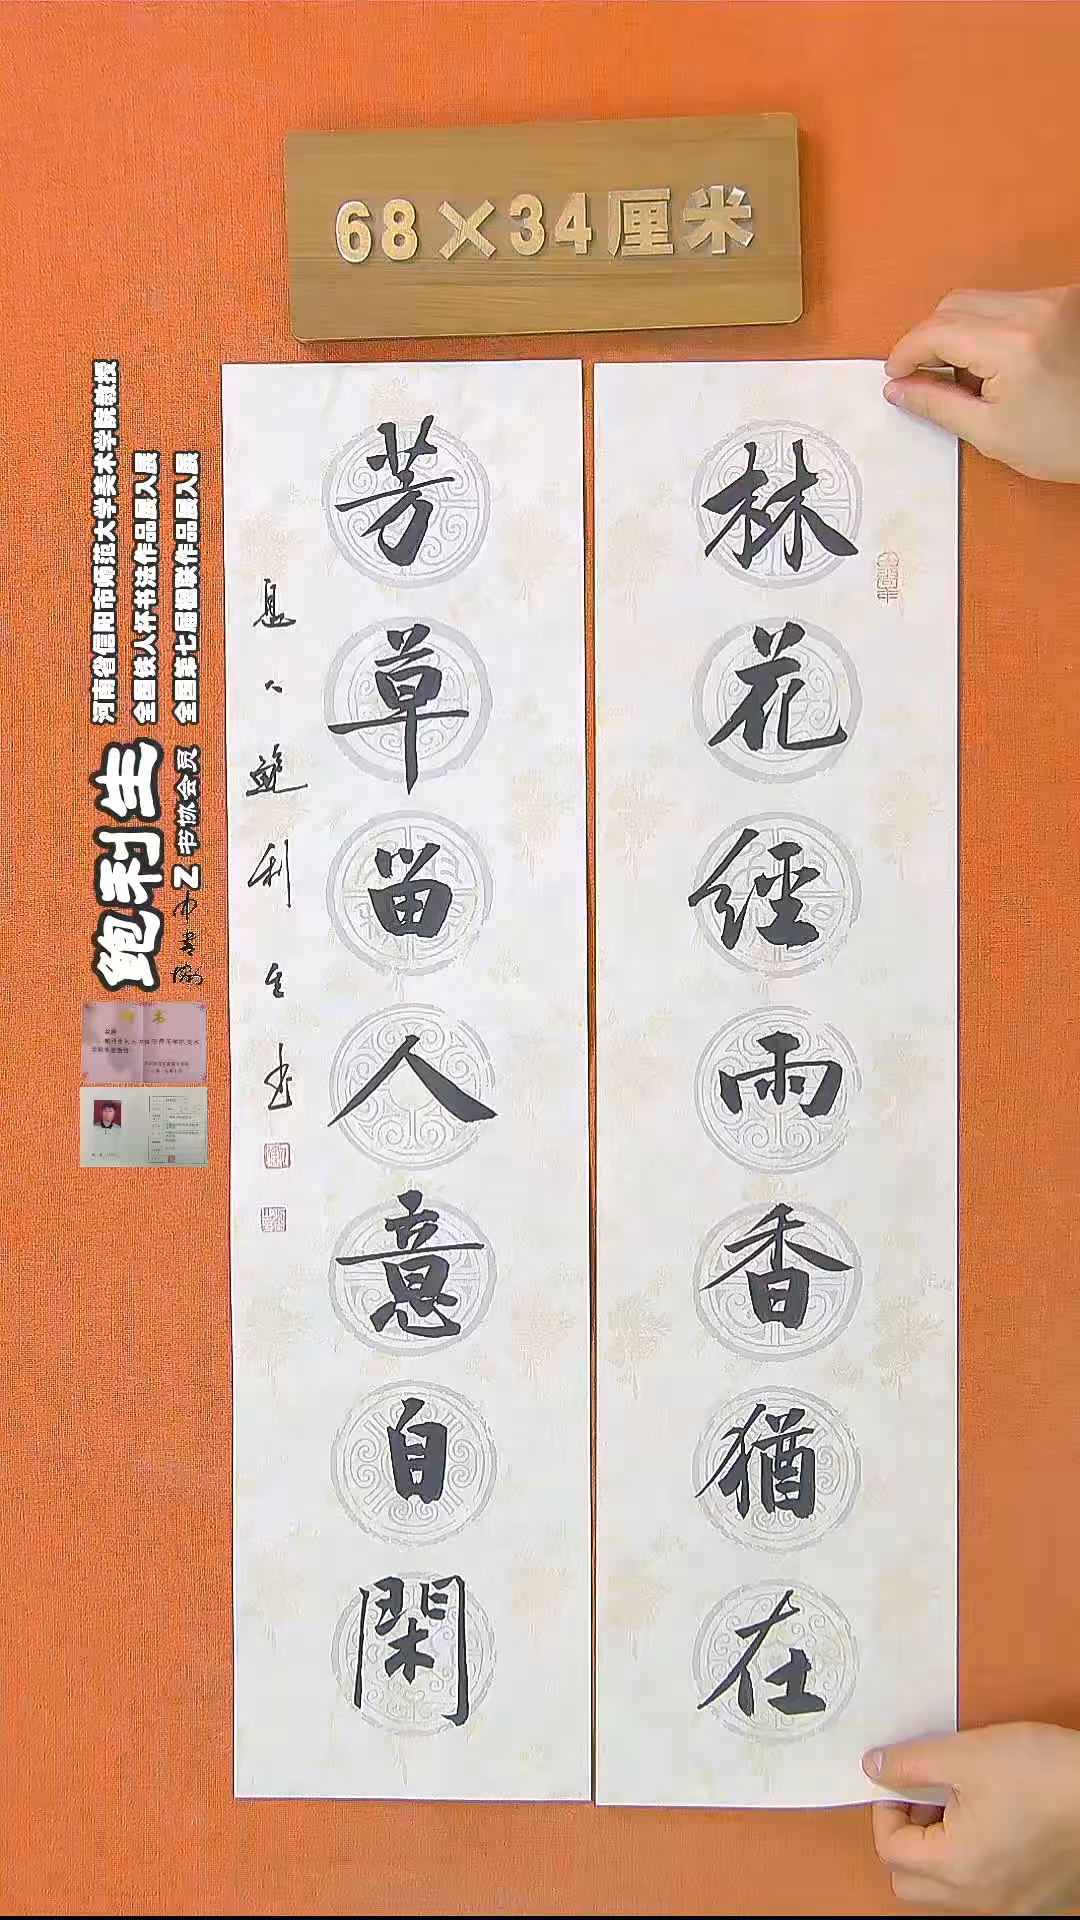 68×34厘米
林花經雨香猶在
芳草留人意自閑
息人鲍利生书
河南省信阳市师范大学美术学院教授
全国铁人杯书法作品展入展
全国第七届楹联作品展入展
鲍利生
Z书协会员